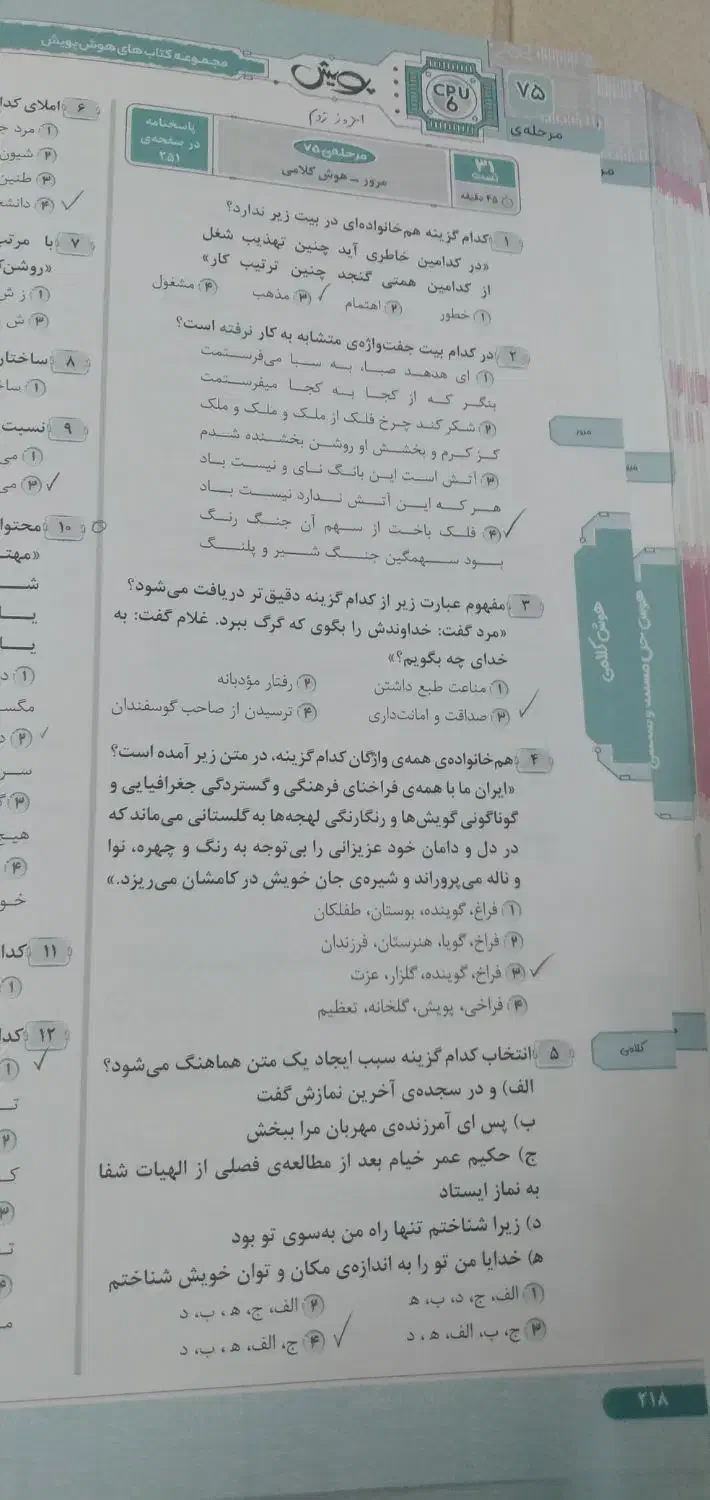 مجموعه کتاب های هوش پویش
پویش
CPU
6
۷۵
مرحله‌ی
امروز زدم
۳۱
تست
۴۵ دقیقه
مرحله‌ی ۷۵
مرور - هوش کلامی
پاسخنامه
در صفحه‌ی
۲۵۱
۱ کدام گزینه هم‌خانواده‌ای در بیت زیر ندارد؟
«در کدامین خاطری آید چنین تهذیب شغل
از کدامین همتی گنجد چنین ترتیب کار»
۱ خطور ۲ اهتمام ۳ مذهب ۴ مشغول
۲ در کدام بیت جفت‌واژه‌ی متشابه به کار نرفته است؟
۱ ای هدهد صبا، به سبا می‌فرستمت
بنگر که از کجا به کجا میفرستمت
۲ شکر کند چرخ فلک از ملک و ملک و ملک
کز کرم و بخشش او روشن بخشنده شدم
۳ آتش است این بانگ نای و نیست باد
هر که این آتش ندارد نیست باد
۴ فلک باخت از سهم آن جنگ رنگ
بود سهمگین جنگ شیر و پلنگ
۳ مفهوم عبارت زیر از کدام گزینه دقیق‌تر دریافت می‌شود؟
«مرد گفت: خداوندش را بگوی که گرگ ببرد. غلام گفت: به
خدای چه بگویم؟»
۱ مناعت طبع داشتن ۲ رفتار مؤدبانه
۳ صداقت و امانت‌داری ۴ ترسیدن از صاحب گوسفندان
۴ هم‌خانواده‌ی همه‌ی واژگان کدام گزینه، در متن زیر آمده است؟
«ایران ما با همه‌ی فراخنای فرهنگی و گستردگی جغرافیایی و
گوناگونی گویش‌ها و رنگارنگی لهجه‌ها به گلستانی می‌ماند که
در دل و دامان خود عزیزانی را بی‌توجه به رنگ و چهره، نوا
و ناله می‌پروراند و شیره‌ی جان خویش در کامشان می‌ریزد.»
۱ فراغ، گوینده، بوستان، طفلکان
۲ فراخ، گویا، هنرستان، فرزندان
۳ فراخ، گوینده، گلزار، عزت
۴ فراخی، پویش، گلخانه، تعظیم
۵ انتخاب کدام گزینه سبب ایجاد یک متن هماهنگ می‌شود؟
الف) و در سجده‌ی آخرین نمازش گفت
ب) پس ای آمرزنده‌ی مهربان مرا ببخش
ج) حکیم عمر خیام بعد از مطالعه‌ی فصلی از الهیات شفا
به نماز ایستاد
د) زیرا شناختم تنها راه من به‌سوی تو بود
ه) خدایا من تو را به اندازه‌ی مکان و توان خویش شناختم
۱ الف، ج، د، ب، ه ۲ الف، ج، ه، ب، د
۳ ج، ب، الف، ه، د ۴ ج، الف، ه، ب، د
۲۱۸
مرور
هوش کلامی
کلامی
۶ املای کدا
۱ مرد ج
۲ شیون
۳ طنین
۴ دانش
۷ با مرتب
«روشن‌
۱ ز ش
۳ ش
۸ ساختار
۱ ساخ
۹ نسبت
۱ می
۳ می
۱۰ محتوا
«مهتـ
شـ
یـا
یـا
۱ د
مگس
۲ د
سر
۳
هیچ
۴
خو
۱۱ کدا
۱
۱۲ کدا
۱
تـ
۲
کـ
۳
تـ
۴